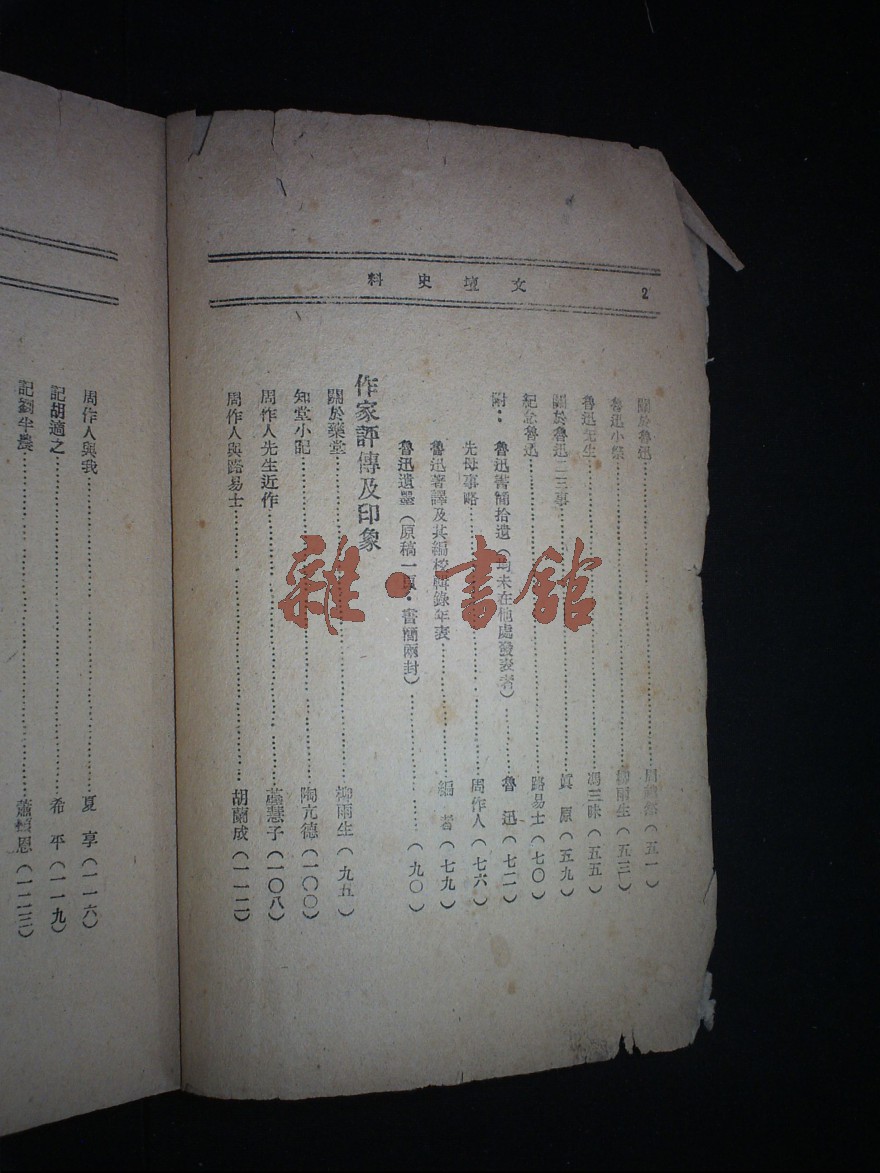 文壇史料 2
關於魯迅……周(五一)
魯迅小祭……柳雨生(五三)
魯迅先生……馮三昧(五五)
關於魯迅二三事……眞原(五九)
紀念魯迅……路易士(七〇)
附：魯迅書簡拾遺(均未在他處發表者)……魯迅(七二)
先母事略……周作人(七六)
魯迅著譯及其編校輯錄年表……編者(七九)
魯迅遺墨(原稿一頁・書簡兩封)……(九〇)
作家評傳及印象
關於藥堂……柳雨生(九五)
知堂小記……陶亢德(一〇〇)
周作人先生近作……慧子(一〇八)
周作人與路易士……胡蘭成(一一二)
周作人與我……夏享(一一六)
記胡適之……希平(一一九)
記劉半農……蕭恩(一二三)
雜・書館